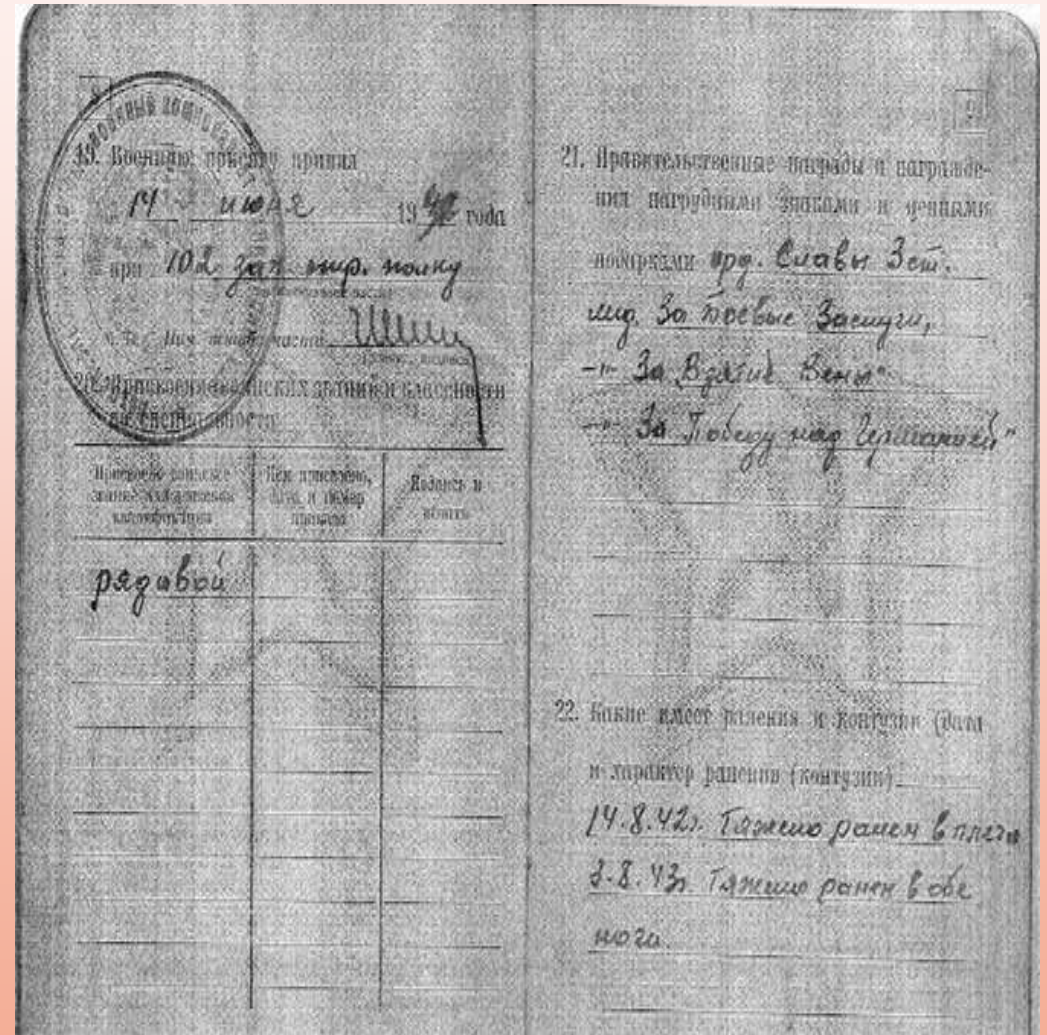 19. Военную присягу принял
14 июня 1942 года
при 102 зап. стр. полку
Нач. штаба части
20. Присвоение воинских званий и классности
по специальности
Присвоено воинское
звание или классная
квалификация
Кем присвоено,
дата и номер
приказа
Подпись и
печать
рядавой
9
21. Правительственные награды и награжде-
ния нагрудными знаками и ценными
подарками орд. Славы 3 ст.
мед. За боевые Заслуги,
-"- За "Взятие Вены"
-"- За Победу над Германией"
22. Какие имеет ранения и контузии (дата
и характер ранения (контузии)
14.8.42г. Тяжело ранен в плечо
3.8.43г. Тяжело ранен в обе
ноги.